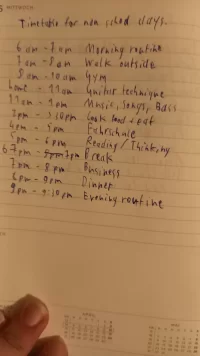 5 MITTWOCH
Timetable for non school days.
6 am - 7 am Morning routine
7 am - 8 am Walk outside
8 am - 10 am Gym
10 am - 11 am Guitar technique
11 am - 1 pm Music, Songs, Bass
1 pm - 1:10 pm Cook food + eat
4 pm - 5 pm Fahrschule
5 pm - 6 pm Reading / Thinking
6 7 pm - 7 pm Break
7 pm - 8 pm Business
8 pm - 9 pm Dinner
9 pm - 9:10 pm Evening routine